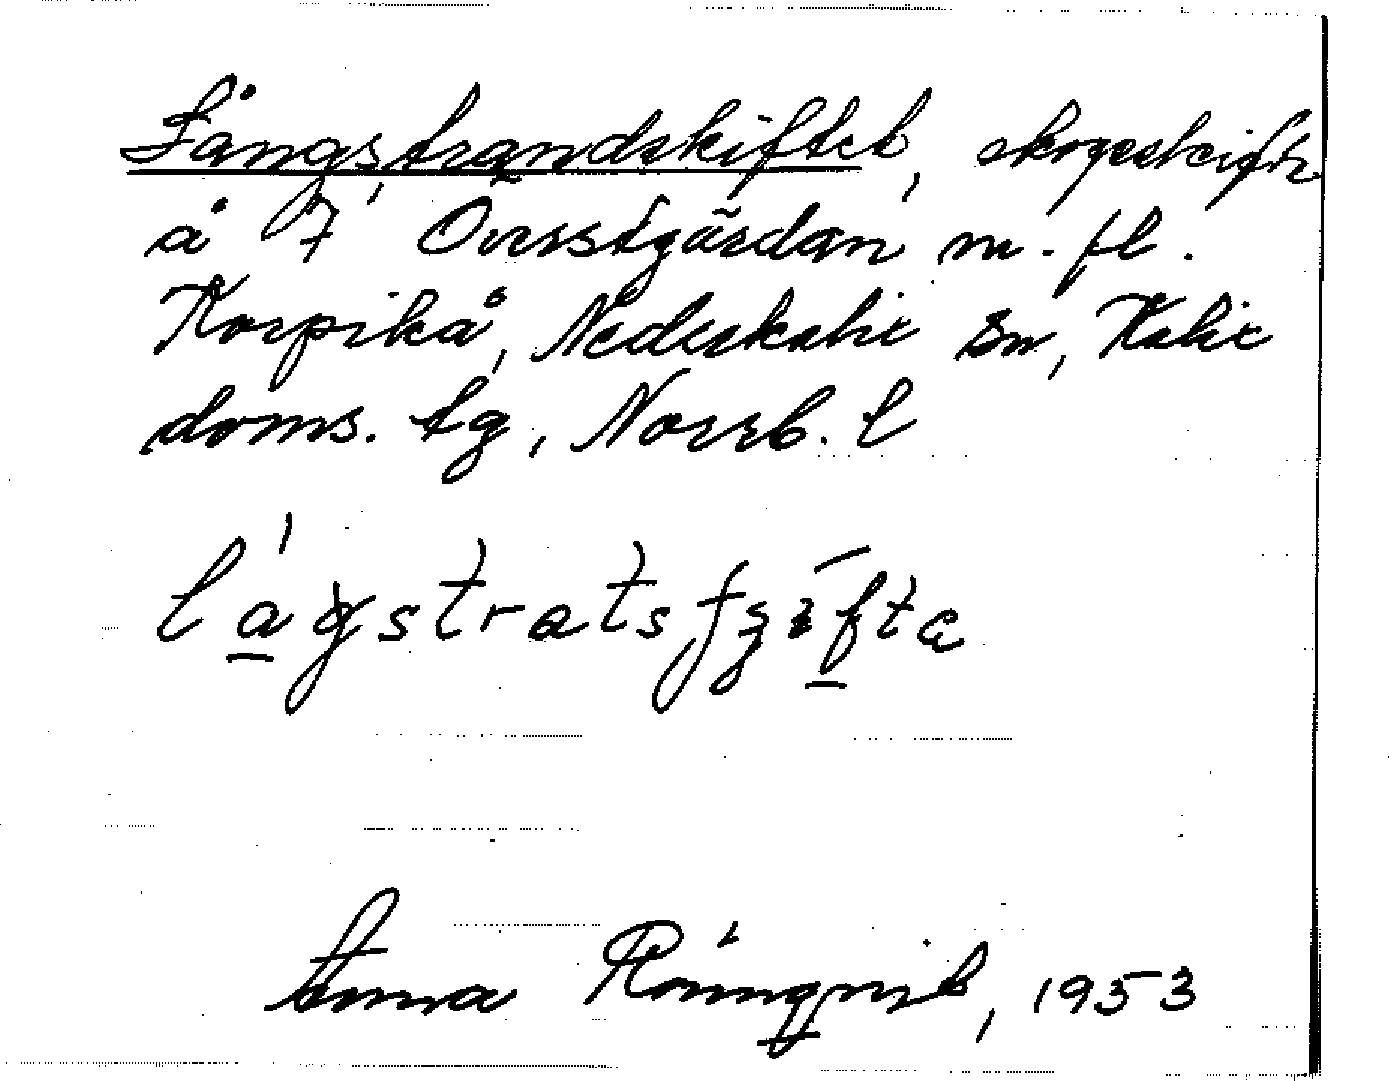 Långstrandskiftet, skogsskifte
å 7 Överstgårdan m. fl.
Korpikå, Nederkalix sn, Kalix
doms. tg, Norrb. l
Anna Rönnqvist, 1953